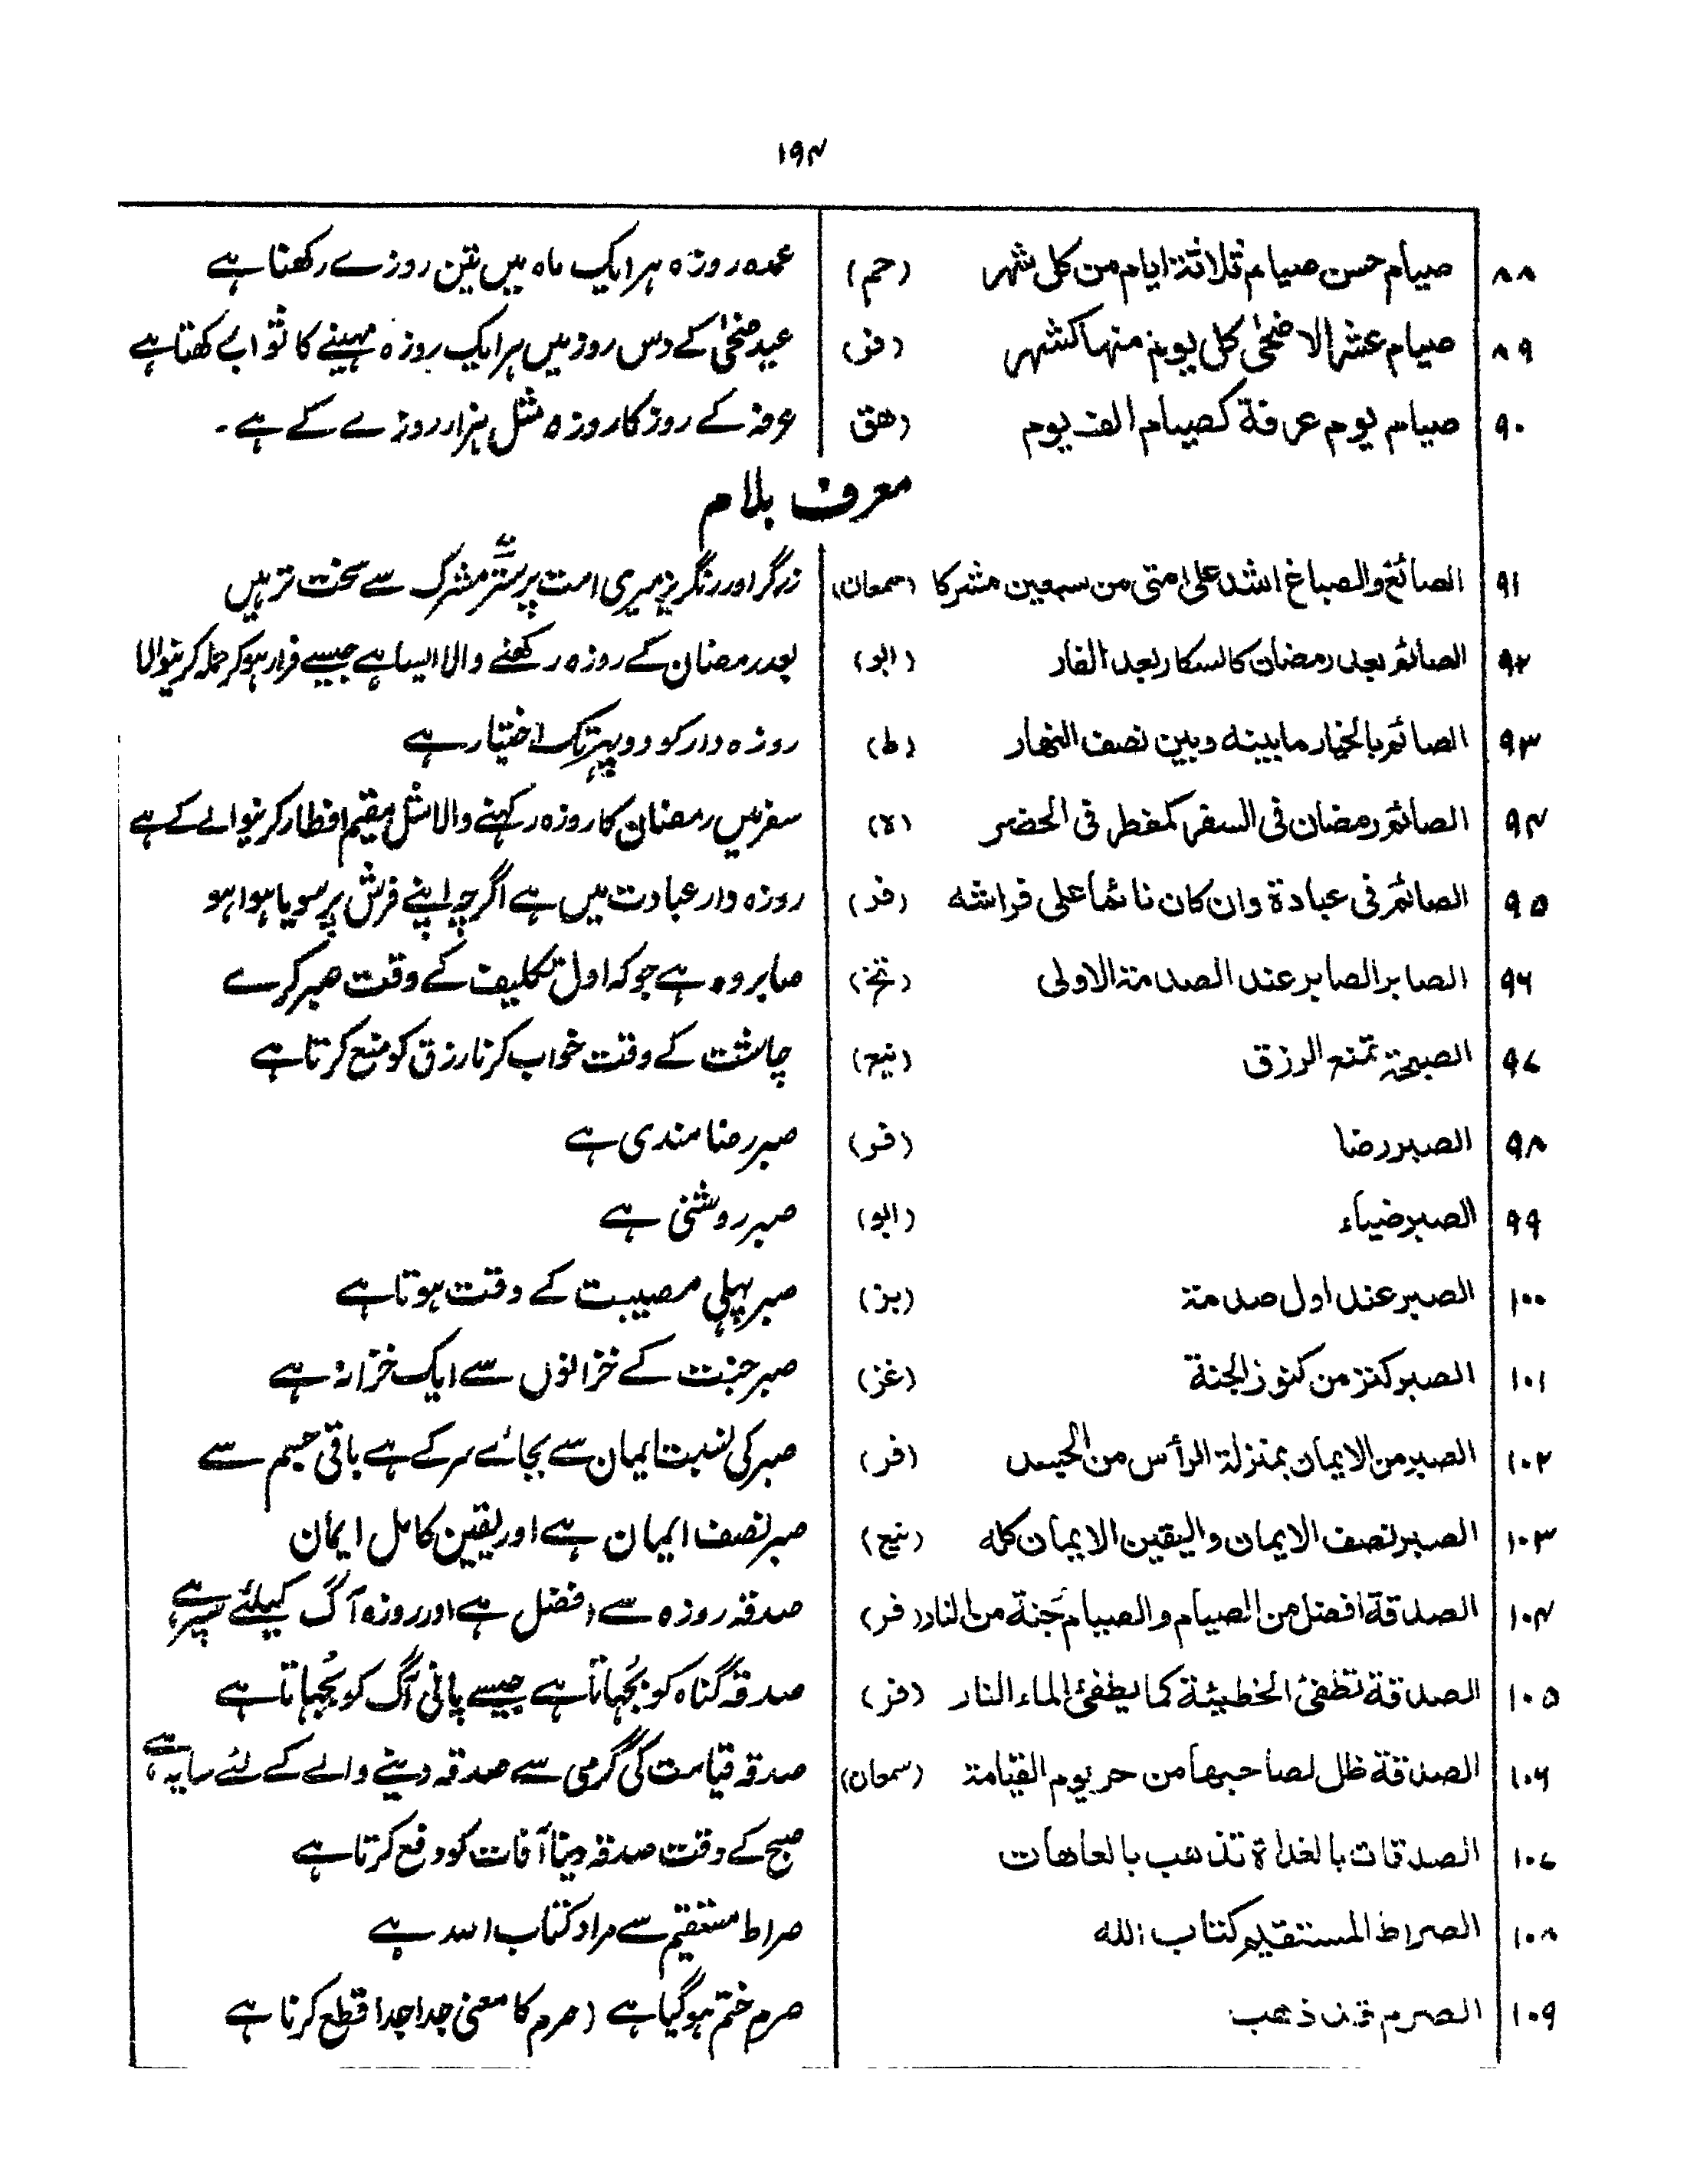 ۱۹۴
۸۸ صیام حسن صیام ثلاثة ایام من کل شهر (حم) عمدہ روزہ ہر ایک ماہ میں تین روزے رکھنا ہے
۸۹ صیام عشر الاضحیٰ کل یوم منها کشهر (فر) عید ضحیٰ کے دس روز میں ہر ایک روزہ مہینے کا ثواب رکھتا ہے
۹۰ صیام یوم عرفة کصیام الف یوم (هق) عرفہ کے روز کا روزہ مثل ہزار روزے کے ہے ۔
معرف بلام
۹۱ الصائغ والصباغ اشد علی امتی من سبعین مشرکا (سمعان) زرگر اور رنگریز میری امت پر ستر مشرک سے سخت تر ہیں
۹۲ الصائم بعد رمضان کالسکار بعد الفار (ابو) بعد رمضان کے روزہ رکھنے والا ایسا ہے جیسے فرار ہو کر حملہ کرنیوالا
۹۳ الصائم بالخیار ما بینه وبین نصف النهار (ط) روزہ دار کو دوپہر تک اختیار ہے
۹۴ الصائم رمضان فی السفر کمفطر فی الحضر (ه) سفر میں رمضان کا روزہ رکہنے والا مثل مقیم افطار کرنیوالے کے ہے
۹۵ الصائم فی عبادة وان کان نائما علی فراشه (فر) روزہ دار عبادت میں ہے اگرچہ اپنے فرش پر سویا ہوا ہو
۹۶ الصابر الصابر عند الصدمة الاولی (تخ) صابر وہ ہے جو کہ اول تکلیف کے وقت صبر کرے
۹۷ الصبحة تمنع الرزق (نیع) چاشت کے وقت خواب کرنا رزق کو منع کرتا ہے
۹۸ الصبر رضا (فر) صبر رضامندی ہے
۹۹ الصبر ضیاء (ابو) صبر روشنی ہے
۱۰۰ الصبر عند اول صدمة (بز) صبر پہلی مصیبت کے وقت ہوتا ہے
۱۰۱ الصبر کنز من کنوز الجنة (غز) صبر جنت کے خزانوں سے ایک خزانہ ہے
۱۰۲ الصبر من الایمان بمنزلة الرأس من الجسد (فر) صبر کی نسبت ایمان سے بجائے سر کے ہے باقی جسم سے
۱۰۳ الصبر نصف الایمان والیقین الایمان کله (نیع) صبر نصف ایمان ہے اور یقین کامل ایمان
۱۰۴ الصدقة افضل من الصیام والصیام جنة من النار (فر) صدقہ روزہ سے افضل ہے اور روزہ آگ کیلئے سپر ہے
۱۰۵ الصدقة تطفئ الخطیئة کما یطفئ الماء النار (فر) صدقہ گناہ کو بجہاتا ہے جیسے پانی آگ کو بجہاتا ہے
۱۰۶ الصدقة ظل لصاحبها من حر یوم القیامة (سمعان) صدقہ قیامت کی گرمی سے صدقہ دینے والے کے لئے سایہ ہے
۱۰۷ الصدقات بالغداة تذهب بالعاهات صبح کے وقت صدقہ دینا آفات کو دفع کرتا ہے
۱۰۸ الصراط المستقیم کتاب الله صراط مستقیم سے مراد کتاب اللہ ہے
۱۰۹ الصرم قد ذهب صرم ختم ہو گیا ہے (صرم کا معنی جدا جدا قطع کرنا ہے